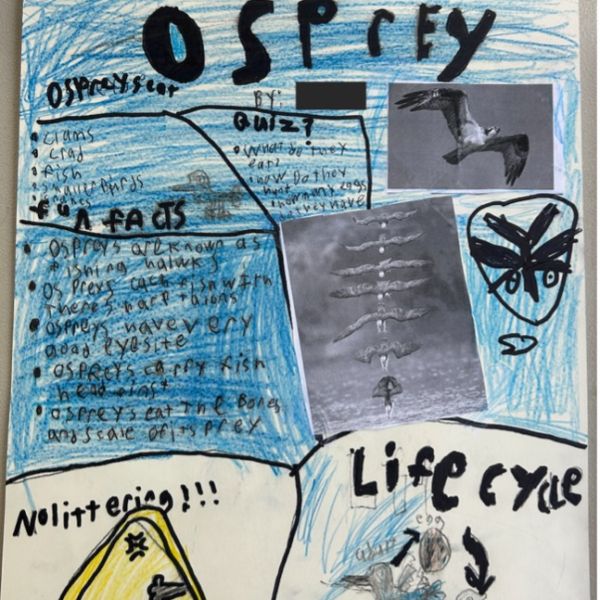 OSPrEY
Ospreys eat
BY:
• Clams
• Crad
• Fish
• Smaller Birds
• Snakes
Quiz?
• What do they
eat?
• how Do they
hunt
• how many eggs
do they have
fun fACTS
• Ospreys are known as
fishing hawks
• Ospreys cach fish with
there sharp talons
• Ospreys have very
good eyesite
• Ospreys carry fish
head first
• Ospreys eat the Bones
and scale of its prey
Nolittering!!!
Life cycle
egg